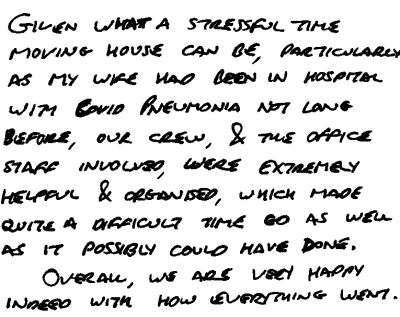 GIVEN WHAT A STRESSFUL TIME
MOVING HOUSE CAN BE, PARTICULARLY
AS MY WIFE HAD BEEN IN HOSPITAL
WITH COVID PNEUMONIA NOT LONG
BEFORE, OUR CREW, & THE OFFICE
STAFF INVOLVED, WERE EXTREMELY
HELPFUL & ORGANISED, WHICH MADE
QUITE A DIFFICULT TIME GO AS WELL
AS IT POSSIBLY COULD HAVE DONE.
OVERALL, WE ARE VERY HAPPY
INDEED WITH HOW EVERYTHING WENT.